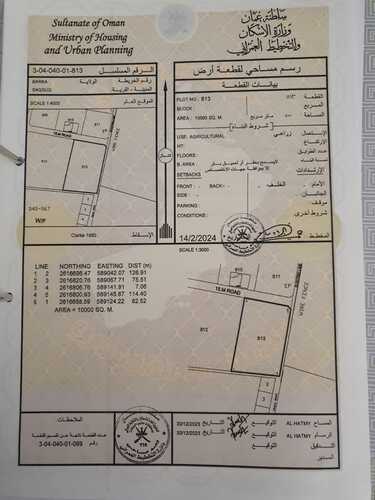 Sultanate of Oman
Ministry of Housing
and Urban Planning
سلطنة عمان
وزارة الإسكان
والتخطيط العمراني
3-04-040-01-813
الرقم المسلسل
رسم مساحي لقطعة أرض
BARKA
الولاية
اسم الخريطة
المدينة - القرية
بيانات القطعة
SCALE 1:4000
الموقع العام
PLOT NO: 813
القطعة
BLOCK:
المربع
AREA: 10000 SQ. M.
متر مربع
المساحة
( شروط البناء )
USE: AGRICULTURAL
زراعي
الاستعمال
HT:
الارتفاع
FLOORS:
عدد الطوابق
B. AREA:
الارتدادات
FRONT:
BACK:
الخلف:
الأمام:
SIDE:
الجانبان:
PARKING:
موقف:
CONDITIONS:
شروط أخرى
WIRE FENCE
811
813
812
W/F
Clarke 1880
الإسقاط
14/2/2024
المخطط
SCALE 1:3000
LINE NORTHING EASTING DIST (m)
1 2 2616696.47 589042.07 126.91
2 3 2616820.76 589067.71 75.51
3 4 2616806.76 589141.91 7.06
4 5 2616800.93 589145.87 114.40
5 1 2616688.59 589124.22 82.52
AREA = 10000 SQ. M.
811
15.M ROAD
WIRE FENCE
812
813
الملاحظات
3-04-040-01-099
30/12/2023
التوقيع
AL HATMY
المساح
30/12/2023
التوقيع
AL HATMY
الرسام
التوقيع
التدقيق
التوقيع
المدير